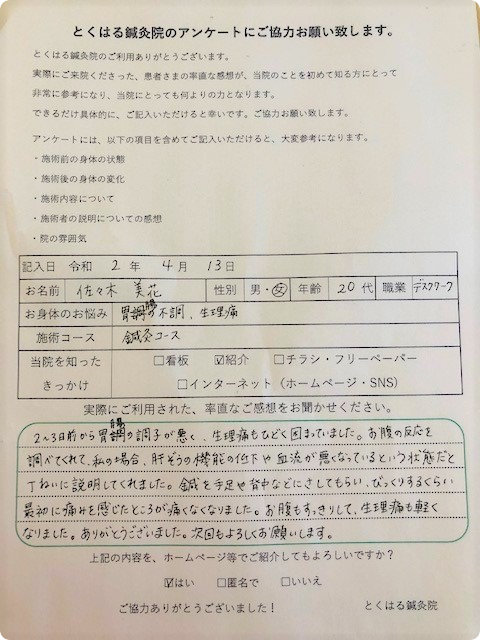 とくはる鍼灸院のアンケートにご協力お願い致します。
とくはる鍼灸院のご利用ありがとうございます。
実際にご来院くださった、患者さまの率直な感想が、当院のことを初めて知る方にとって
非常に参考になり、当院にとっても何よりの力となります。
できるだけ具体的に、ご記入いただけると幸いです。ご協力お願い致します。
アンケートには、以下の項目を含めてご記入いただけると、大変参考になります。
・施術前の身体の状態
・施術後の身体の変化
・施術内容について
・施術者の説明についての感想
・院の雰囲気
記入日 令和 2 年 4 月 13 日
お名前 佐々木 美花 性別 男・女 年齢 20 代 職業 デスクワーク
お身体のお悩み 胃腸の不調、生理痛
施術コース 鍼灸コース
当院を知った □看板 ☑紹介 □チラシ・フリーペーパー
きっかけ □インターネット（ホームページ・SNS）
実際にご利用された、率直なご感想をお聞かせください。
2〜3日前から胃腸の調子が悪く、生理痛もひどく困っていました。お腹の反応を
調べてくれて、私の場合、肝ぞうの機能の低下や血流が悪くなっているという状態だと
丁ねいに説明してくれました。鍼を手足や背中などにさしてもらい、びっくりするくらい
最初に痛みを感じたところが痛くなくなりました。お腹もすっきりして、生理痛も軽く
なりました。ありがとうございました。次回もよろしくお願いします。
上記の内容を、ホームページ等でご紹介してもよろしいですか？
☑はい □匿名で □いいえ
ご協力ありがとうございました！ とくはる鍼灸院